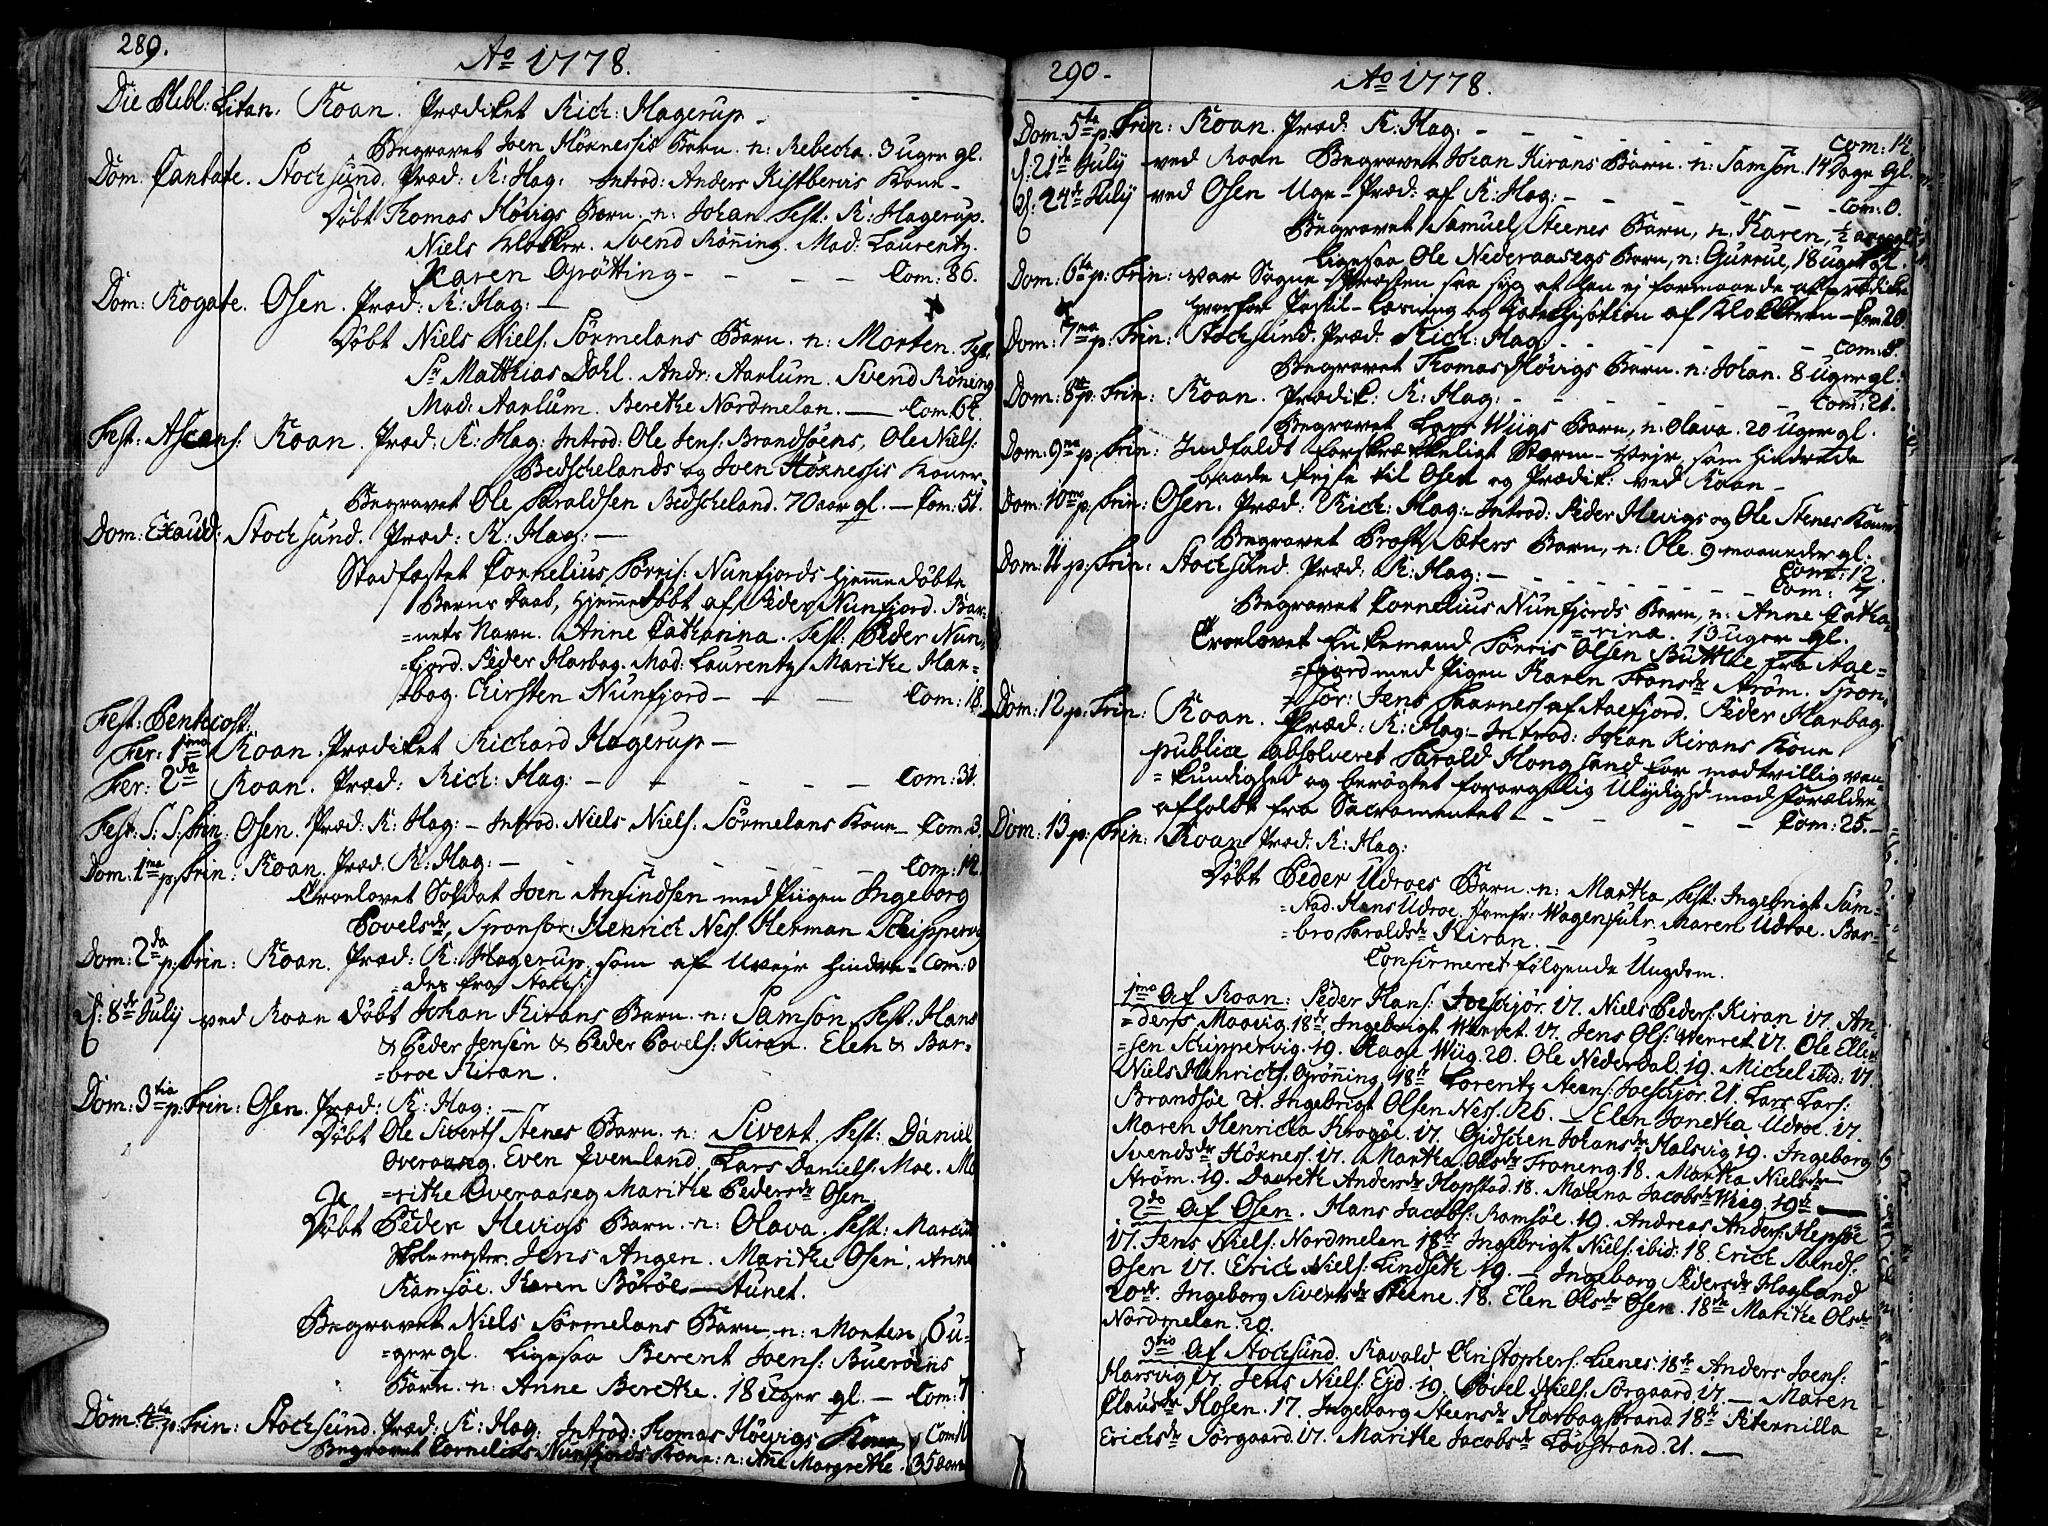 289.
Ao 1778.
Die Publ: Litan. Roan. Prædiket Rich: Hagerup.
Begravet Joen Hörnessis Barn. n: Rebecka. 3 uger gl.
Dom. Cantate. Stocksund. Præd: R: Hag: Introd: Anders Kistbervis Kone
Döbt Thomas Hövigs Barn. n: Johan Test: R: Hagerup.
Niels Klokker. Svend Rönning. Mad: Laurentz.
Karen Grötting - Com: 86.
Dom: Rogate. Osen. Præd: R: Hag:
Döbt Niels Niels: Sörmelans Barn. n: Morten. Test:
Sr Matthias Dahl. Andr: Aarlum. Svend Röning
Mad: Aarlum. Berethe Nordmelan. Com: 64.
Fest: Ascens: Roan. Præd: R: Hag: Introd: Ole Jens: Brandsöens, Ole Niels:
Bedschelands og Joen Hörnessis Koner.
Begravet Ole Haraldsen Bedscheland. 70 aar gl. Com: 51.
Dom: Exaud: Stocksund. Præd: R: Hag:
Stadfæstet Cornelius Törris: Nunfjords hjemme döbte
Barns daab, hjemmedöbt af Peder Nunfjord. Bar-
=nets Navn. Anne Catharina. Test: Peder Nun-
=fjord. Peder Harbag. Mad: Laurentz Marithe Har-
=bag. Chirsten Nunfjord - Com: 18.
Fest: Pentecost:
Fer: 1ma Roan. Prædiket Richard Hagerup
Fer: 2da Roan. Præd: Rich: Hag: - Com: 31.
Fest: S: S: Trin: Osen. Præd: R: Hag: Introd. Niels Niels: Sörmelans Kone Com: 3.
Dom: 1ma p: Trin: Roan. Præd: R: Hag: - Com: 12.
Troelovet Soldat Joen Ansindsen med Piigen Ingeborg
Povelsdr, Sponsor: Henrich Nes. Herman Schippervig
Dom: 2da p: Trin: Roan. Præd: R: Hagerup, som af Uvejr hindre- Com: 0
=des fra
d: 8de July ved Roan döbt Johan Kirans Barn. n: Samson. Test. Hans
& Peder Jensen & Peder Povels: Kiran. Elen & Bar-
=broe Kiran.
Dom: 3tia p: Trin: Osen. Præd: R: Hag:
Döbt Ole Siverts Stenes Barn. n: Sivert. Test: Daniel
Overaaseg. Even Evenland. Lars Daniels: Moe. Ma
=rithe Overaaseg Marithe Pedersdr Osen.
Döbt Peder Hevigs Barn. n: Olava. Test: Marcus
Skolemester. Jens Angen. Marithe Osen. Anne
Ramsöe. Karen Böröe Aunet.
Begravet Niels Sörmelans Barn, n: Morten 6 u-
=ger gl. Ligesaa Berent Joens: Bueröens
Barn. n: Anne Berethe. 18 uger gl. Com: 7
Dom: 4ta p: Trin: Stocksund. Præd: R: Hag: Introd: Thomas Hövigs Kone Com: 10
Begravet Cornelius Nunfjords Kone: n: Ane Margrethe. 35 aar
290.
Ao 1778.
Dom: 5ta p: Trin: Roan. Præd: R: Hag: - Com: 14.
d: 21de July ved Roan Begravet Johan Kirans Barn. n: Samson. 14 Dage gl.
d: 24de July ved Osen Uge-Præd: af R: Hag: - Com: 0.
Begravet Samuel Steenes Barn, n: Karen, ½ aar gl.
Ligesaa Ole Nederaasegs Barn, n: Gunrue, 18 uger gl.
Dom: 6ta p: Trin: var Sogne-Præsten saa syg at han ej formaaede at prædike
hvorfor Postil-Læsning og Catechisation af Klokkeren Com: 20.
Dom: 7ma p: Trin: Stocksund. Præd: Rich: Hag: - Com: 8.
Begravet Thomas Hövigs Barn. n: Johan. 8 uger gl:
Dom: 8de p: Trin: Roan. Prædik: R: Hag: - Com: 21.
Begravet Lars Wiigs Barn, n: Olava. 20 uger gl.
Dom: 9na p: Trin: Indfaldt forskrækkeligt Storm-Vejr, som hindrede
baade Rejse til Osen og Prædik: ved Roan
Dom: 10ma p: Trin: Osen. Præd: Rich: Hag: Introd: Peder Hevigs og Ole Stenes Koner
Begravet Sæters Barn, n: Ole. 9 maaneder gl.
Com: 12.
Dom: 11 p: Trin: Stocksund. Præd: R: Hag: - Com: 7
Begravet Cornelius Nunfjords Barn, n: Anne Catha-
=rina. 13 uger gl.
Troelovet Enkemand Törris Olsen Buttlie fra Aae=
=fjord med Pigen Karen Fransdr Ström. Spon-
=sor: Jens Haarnes af Aaefjord. Peder Harbag
Dom: 12 p: Trin: Roan. Præd: R: Hag: Introd: Johan Kirans Kone
publice absolveret Harald Hongsand for modtvillig van-
=kundighed og beröget forargelig Ulydighed mod Forældre
afholdt fra Sacramentet - Com: 25.
Dom: 13 p: Trin: Roan Præd: R: Hag:
Döbt Peder Udroes Barn. n: Martha, Test: Ingebrigt Sum-
=stad. Hans Udroe. Jomfr: Wagensuhr. Maren Udroe. Bar-
=bro Haraldsdr Kiran.
Confirmeret følgende Ungdom.
1mo Af Roan: Peder Hans: Joeschjör. 17. Niels Peders: Kiran 17. An-
=ders Maavig. 18de Ingebrigt Werret. 17. Jens Ols: Werret 17. Ole Ellef-
=sen Schippervig. 19. Aage Wiig. 20. Ole Nederdal. 19. Michel ibid: 17
Niels Henrichs: Grönning 18de Lorentz Steens: Joeschjör. 21. Lars Lars:
Brandsöe 21. Ingebrigt Olsen Ness. 26. Elen Janetha Udroe. 17.
Maren Henricha Kragöe. 17. Gidschen Johansdr Halsvig 19. Ingeborg
Svendsdr Hörness. 17. Martha Olsdr Froneng. 18. Martha Nielsdr
Ström. 19. Dorethe Andersdr Hopstad. 18. Malena Jacobsdr Wiig. 19de
2do Af Osen. Hans Jacobs: Ramsöe. 19. Andreas Anders: Hepsöe
17. Jens Niels: Nordmelan 18de Ingebrigt Niels: ibid: 18. Erick Svends:
Osen 17. Erick Niels: Lindseth 19. Ingeborg Pedersdr Hagland
20de. Ingeborg Sivertsdr Steene. 18. Elen Olsdr Osen. 18de Marithe Olsdr
Nordmelan. 20.
3tio Af Stocksund. Ravald Christophers: Lienes. 18de Anders Joens:
Harsvig 17. Jens Niels: Ejd. 19. Povel Niels: Sörgaard 17. Maren
Clausdr Hosen. 17. Ingeborg Steensdr Harbagstrand. 18de Peternilla
Ericksdr Sörgaard. 17. Marithe Jacobsdr Lövstrand. 21.